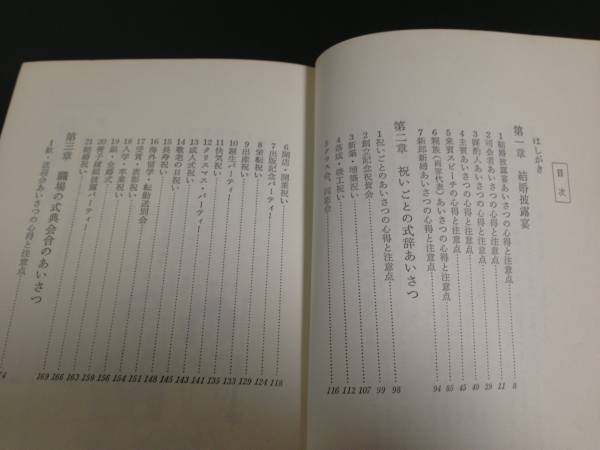 目次
はしがき
第一章 結婚披露宴
1 結婚披露宴あいさつの心得と注意点 8
2 司会者あいさつの心得と注意点 11
3 媒酌人あいさつの心得と注意点 29
4 主賓あいさつの心得と注意点 40
5 来賓スピーチの心得と注意点 45
6 親族(両家代表)あいさつの心得と注意点 85
7 新郎新婦あいさつの心得と注意点 94
第二章 祝いごとの式辞あいさつ
1 祝いごとのあいさつの心得と注意点 98
2 創立記念祝賀会 99
3 新築・増築祝い 107
4 落成・竣工祝い 112
5 クラス会、同窓会 116
6 開店・開業祝い 118
7 出版記念パーティー 124
8 栄転祝い 129
9 出産祝い 133
10 誕生パーティー 135
11 快気祝い 141
12 クリスマス・パーティー 143
13 成人式祝い 145
14 敬老の日祝い 148
15 長寿祝い 151
16 海外留学・転勤送別会 154
17 受賞・表彰祝い 156
18 入学・卒業祝い 159
19 銀・金婚式 163
20 養子縁組披露パーティー 166
21 結婚祝い 169
第三章 職場の式典会合のあいさつ
1 歓・送迎会あいさつの心得と注意点